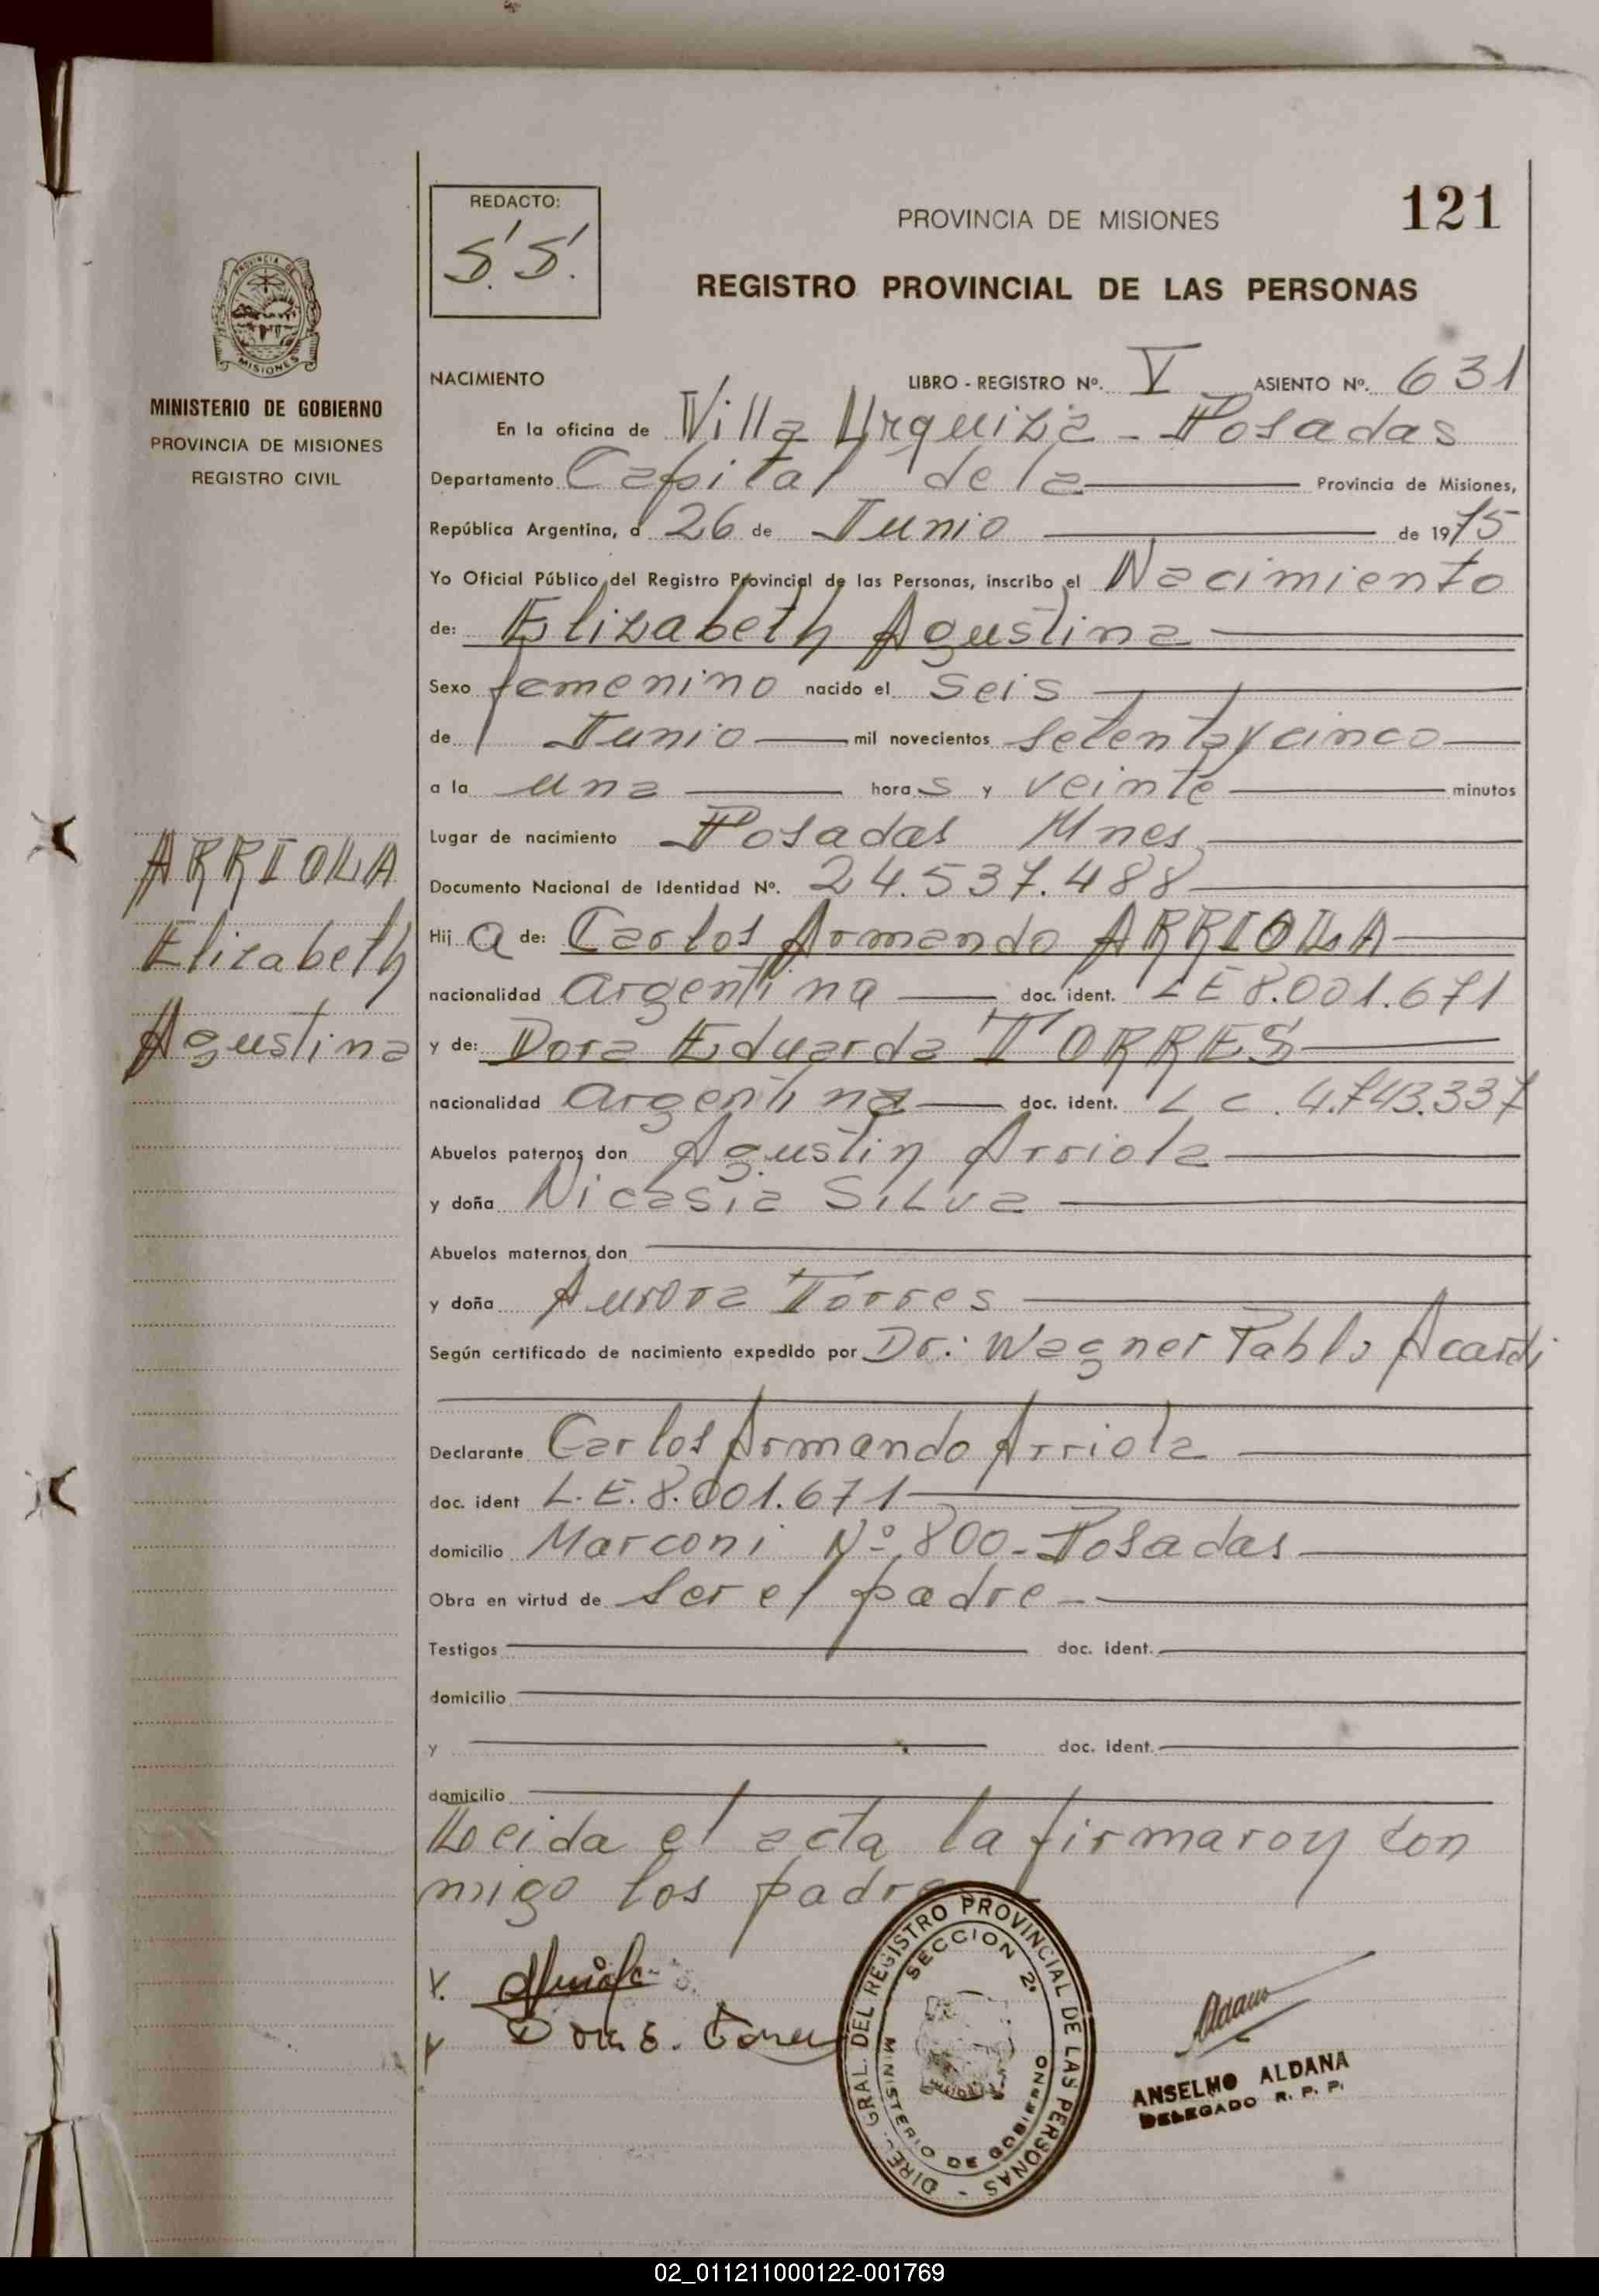 121
REDACTO:
S. S.
PROVINCIA DE MISIONES
REGISTRO PROVINCIAL DE LAS PERSONAS
PROVINCIA DE
MISIONES
MINISTERIO DE GOBIERNO
PROVINCIA DE MISIONES
REGISTRO CIVIL
NACIMIENTO LIBRO - REGISTRO Nº. V ASIENTO Nº. 631
En la oficina de Villa Urquiza - Posadas
Departamento Capital de la Provincia de Misiones,
República Argentina, a 26 de Junio de 1975
Yo Oficial Público del Registro Provincial de las Personas, inscribo el Nacimiento
de: Elizabeth Agustina
Sexo femenino nacido el seis
de Junio mil novecientos setenta y cinco
a la una horas y veinte minutos
Lugar de nacimiento Posadas Mnes
Documento Nacional de Identidad Nº. 24.537.488
ARRIOLA
Elizabeth
Agustina
Hija de: Carlos Armando ARRIOLA
nacionalidad argentina doc. ident. LE 8.001.671
y de: Dora Eduarda TORRES
nacionalidad argentina doc. ident. L C. 4.743.337
Abuelos paternos don Agustin Arriola
y doña Nicasia Silva
Abuelos maternos don
y doña Aurora Torres
Según certificado de nacimiento expedido por Dr.: Wagner Pablo Acardi
Declarante Carlos Armando Arriola
doc. ident L.E. 8.001.671
domicilio Marconi Nº 800 - Posadas
Obra en virtud de ser el padre -
Testigos doc. ident.
domicilio
y doc. ident.
domicilio
Leida el acta la firmaron con
migo los padres
Dora E. Torres
DIREC. GRAL. DEL REGISTRO PROVINCIAL DE LAS PERSONAS -
SECCION 2ª
MINISTERIO DE GOBIERNO
Aldana
ANSELMO ALDANA
DELEGADO R. P. P.
02_011211000122-001769